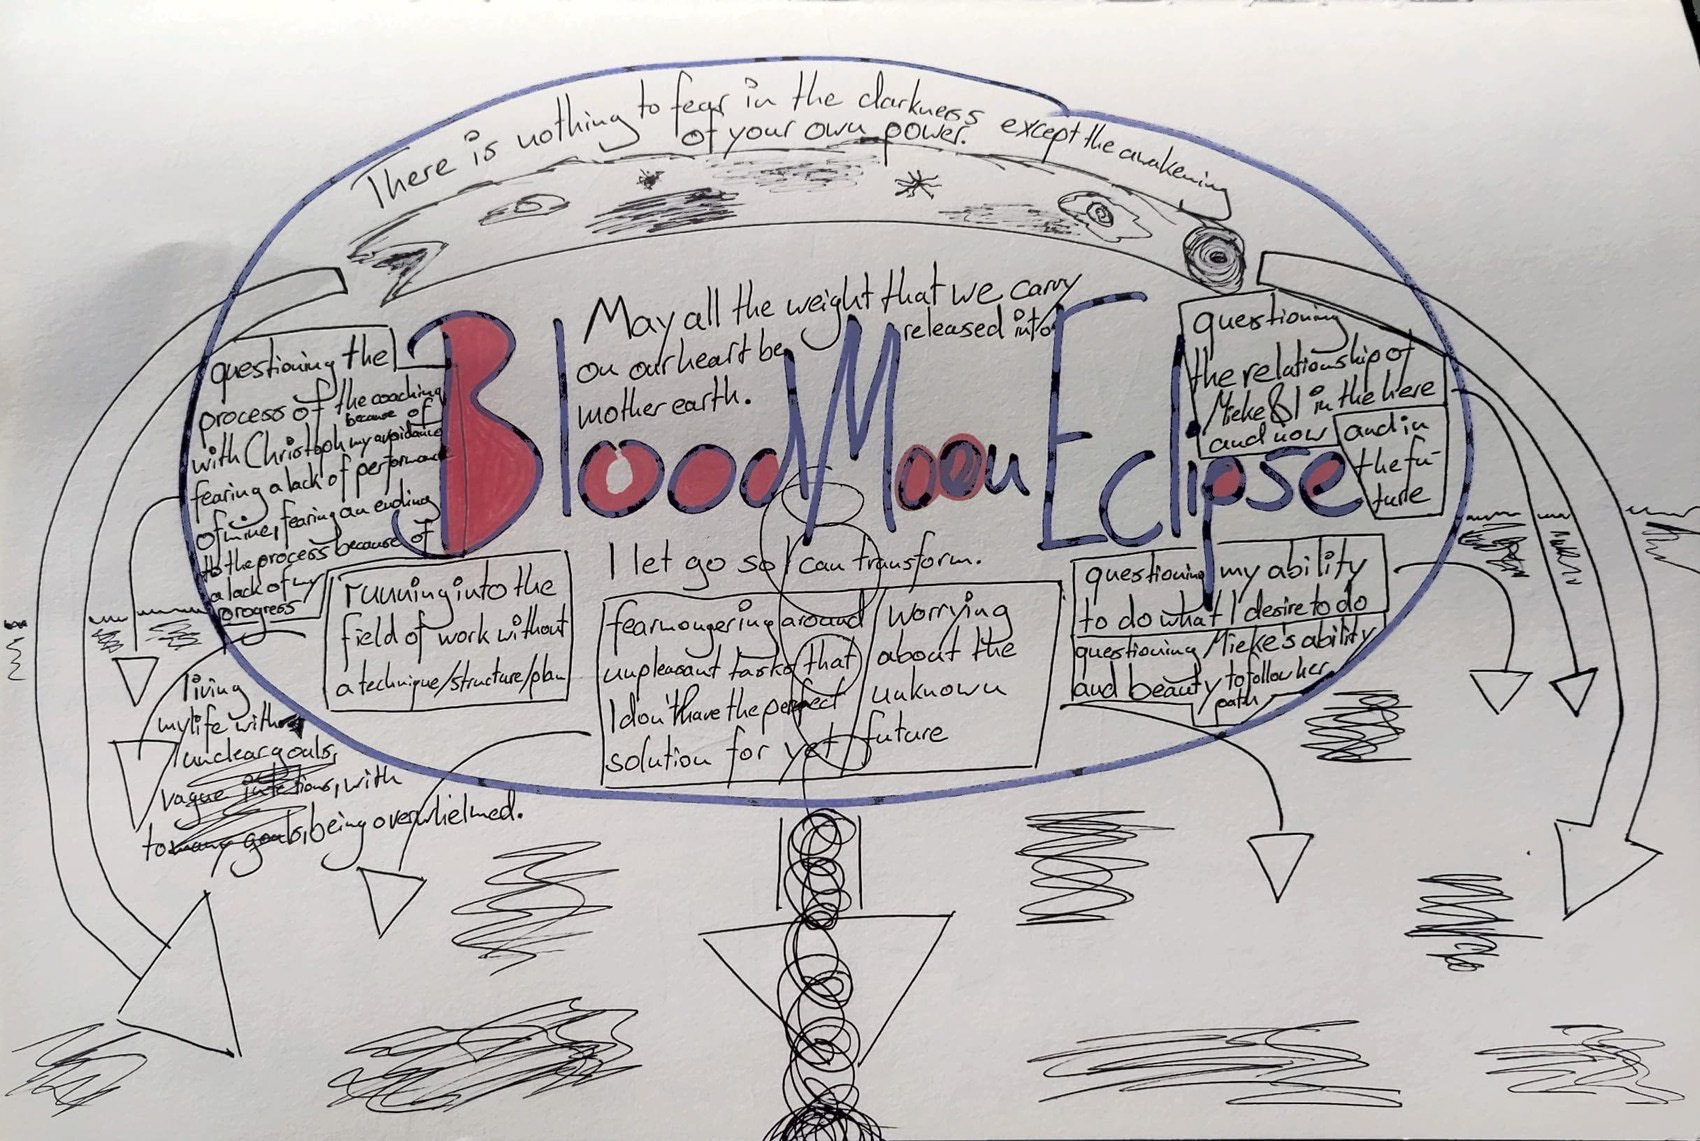 There is nothing to fear in the darkness except the awakening
of your own power.
May all the weight that we carry
on our heart be released into
mother earth.
Blood Moon Eclipse
questioning the
process of the coaching
because of
with Christoph my avoidance
fearing a lack of performance
of mine, fearing an ending
to the process because of
a lack of my
progress
questioning
the relationship of
Mieke & I in the here
and now
and in
the fu-
ture
I let go so I can transform.
running into the
field of work without
a technique/structure/plan
fearmongering around
unpleasant tasks that
I don't have the perfect
solution for yet
worrying
about the
unknown
future
questioning my ability
to do what I desire to do
questioning Mieke's ability
and beauty to follow her
path
living
my life with
unclear goals,
vague intentions, with
to many goals, being overwhelmed.